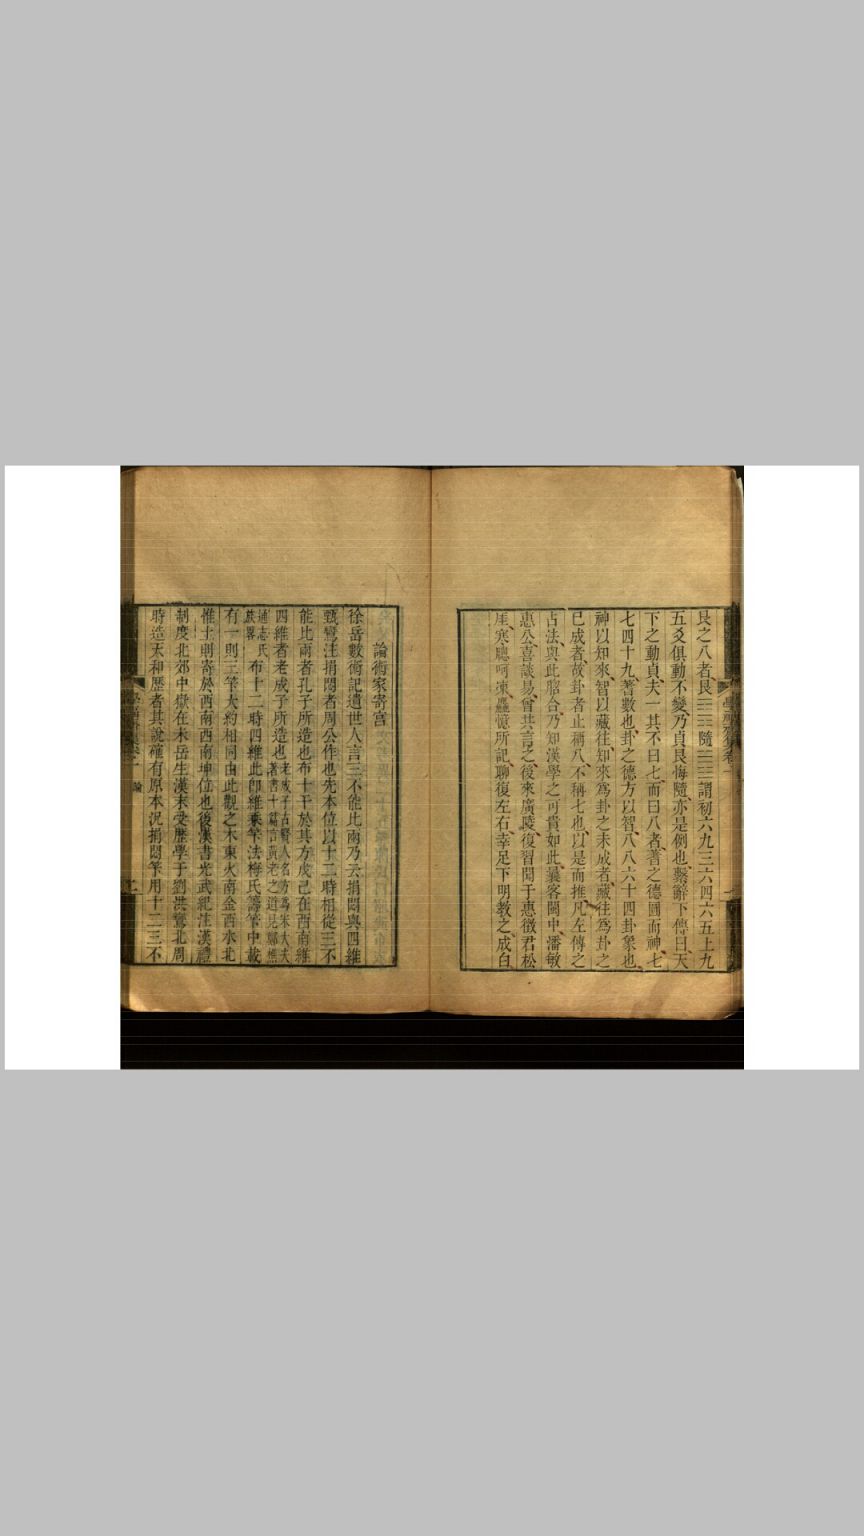 艮之八者艮䷳隨䷐謂初六九三六四六五上九
五爻俱動不變乃貞艮悔隨亦是例也繫辭下傳曰天
下之動貞夫一其不曰七而曰八者蓍之德圓而神七
七四十九蓍數也卦之德方以智八八六十四卦象也
神以知來智以藏往知來爲卦之未成者藏往爲卦之
已成者故卦者止稱八不稱七也以是而推凡左傳之
占法與此脗合乃知漢學之可貴如此曩客閩中潘敏
惠公喜談易曾共言之後來廣陵復習聞于惠徵君松
厓寒牕呵凍麤憶所記聊復左右幸足下明教之成白
論術家寄宫
徐岳數術記遺世人言三不能比兩乃云捐悶與四維
甄鸞注捐悶者周公作也先本位以十二時相從三不
能比兩者孔子所造也布十干於其方戊己在西南維
四維者老成子所造也老成子古賢人名方爲宋大夫著書十篇言黄老之道見鄭樵
通志氏族畧布十二時四維此卽維乘竿法梅氏籌竿中載
有一則三竿大約相同由此觀之木東火南金西水北
惟土則寄於西南西南坤位也後漢書光武紀注漢禮
制度北郊中嶽在未岳生漢末受歷學于劉洪鸞北周
時造天和歷者其說確有原本況捐悶竿用十二三不